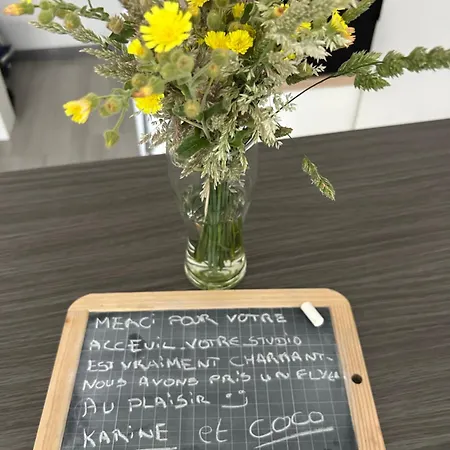 MERCI POUR VOTRE
ACCEUIL. VOTRE STUDIO
EST VRAIMENT CHARMANT.
NOUS AVONS PRIS UN FLYER.
AU PLAISIR :)
KARINE et COCO